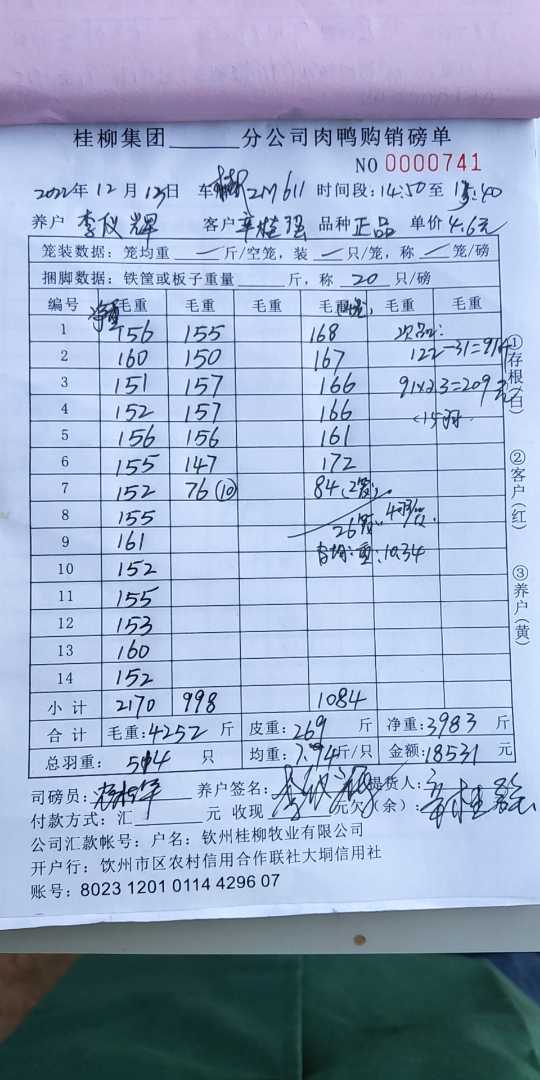 桂柳集团______分公司肉鸭购销磅单
NO 0000741
2022年 12月 13日 车 2M611 时间段:14:50至 15:40
养户 李仪辉 客户 辛桂强 品种 正品 单价 4.6元
笼装数据: 笼均重 — 斤/空笼, 装 — 只/笼, 称 — 笼/磅
捆脚数据: 铁筐或板子重量 斤, 称 20 只/磅
编号 净重 毛重 毛重 毛重 毛重 毛重 毛重
1 156 155 168 次品:
2 160 150 167 122-31=91斤
3 151 157 166 91×2.3=209元
4 152 157 166 <15羽
5 156 156 161
6 155 147 172
7 152 76 (10) 84 (2笼)
8 155 26笼
9 161 重: 10.34
10 152
11 155
12 153
13 160
14 152
小计 2170 998 1084
合计 毛重:4252 斤 皮重: 269 斤 净重:3983 斤
总羽重: 514 只 均重: 7.94斤/只 金额:18531 元
司磅员: 养户签名: 李仪辉 提货人: 辛桂强
付款方式: 汇 元 收现 元欠(余):
公司汇款帐号: 户名: 钦州桂柳牧业有限公司
开户行: 钦州市区农村信用合作联社大垌信用社
账号: 8023 1201 0114 4296 07
①存根(白)
②客户(红)
③养户(黄)